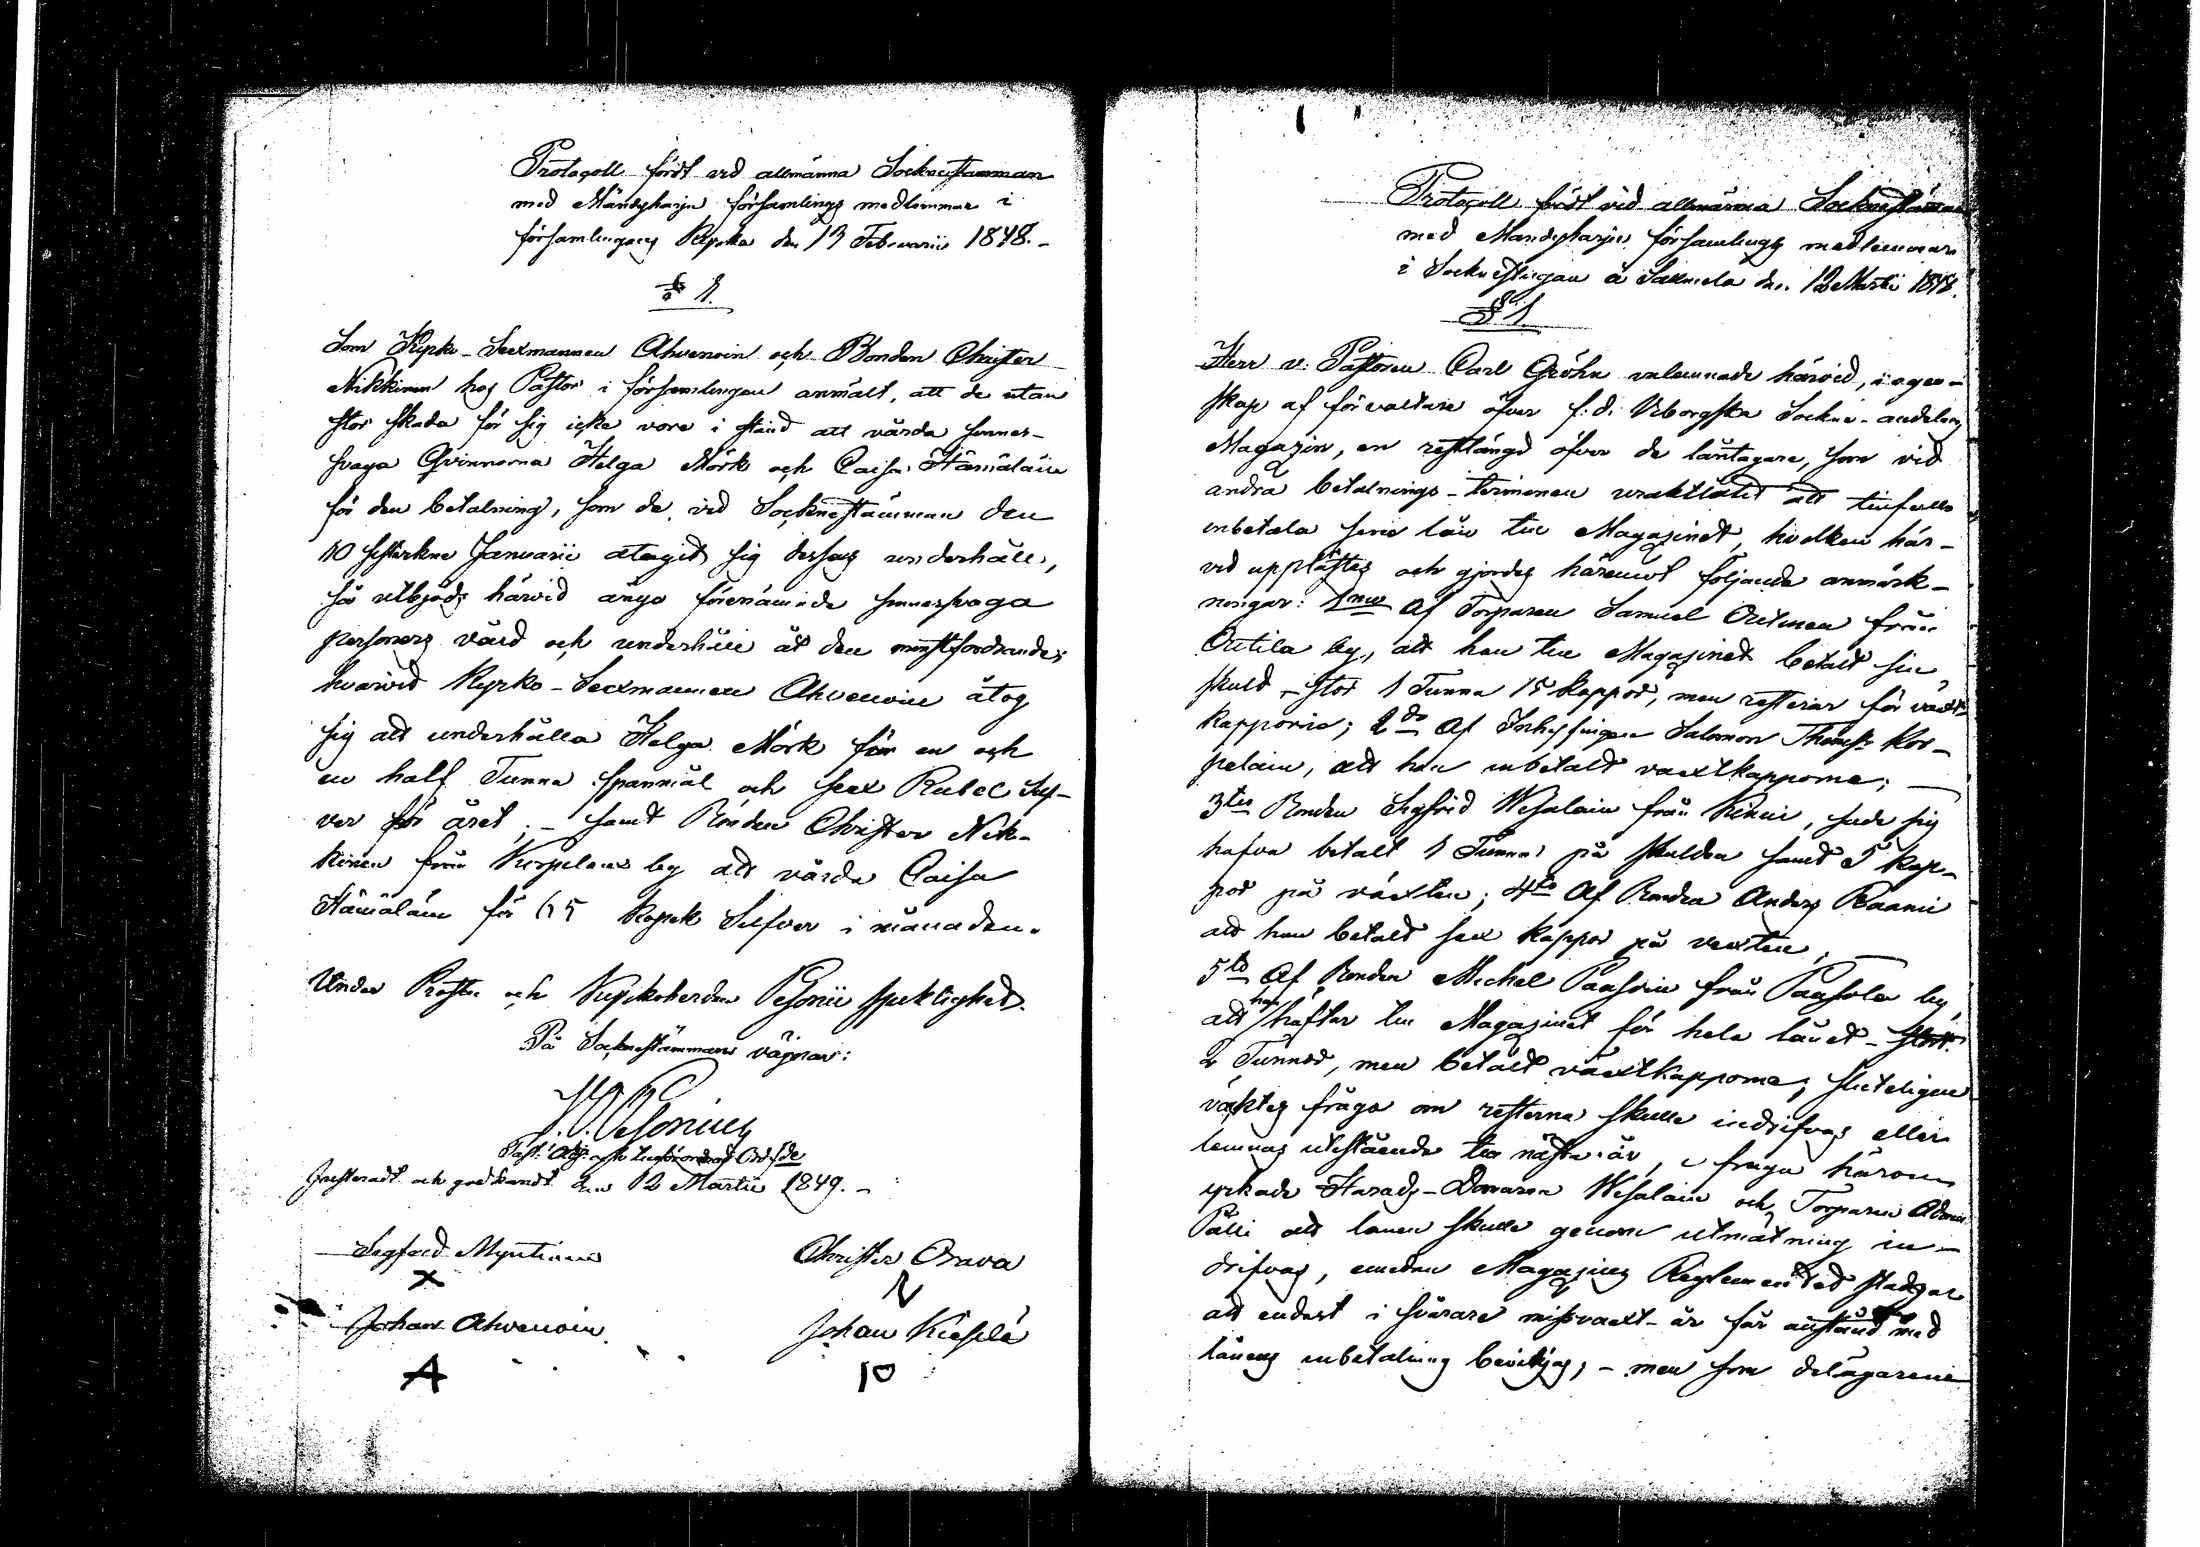 Protocoll fördt vid allmänna Sockenstämman
med Mändyharju församlings medlemmar i
församlingens Kyrka den 13 Februarii 1848.-
§ 1.
Som Kyrko-Sexmannen Ahvenoin och Bonden Christer
Nikkinen hos Pastor i församlingen anmält, att de utan
stor skada för sig icke vore i stånd att vårda sinnes-
svaga Qvinnorna Helga Mörk och Caisa Hämäläin
för den betalning, som de vid Sockenstämman den
10 sistledne Januarii åtagit sig dessas underhåll,
så utbjöds härvid ånyo förenämnde sinnessvaga
personers vård och underhåll åt den minstfordrande;
hvarvid Kyrko-Sexmannen Ahvenoin åtog
sig att underhålla Helga Mörk för en och
en half Tunna Spannmål och sex Rubel Silf-
ver för året; - samt Bonden Christer Nik-
kinen från by att vårda Caisa
Hämäläin för 65 Kopek Silfver i månaden.
Under Prosten och Kyrkoherden Pesonii
På Sockenstämmans vägnar:
Pesonius
Justeradt och godkändt den 12 Martii 1849. -
Sigfrid Myntinen Christer Orava
X
Johan Ahvenoin Johan
A
Protocoll fördt vid allmänna Sockenstämman
med Mändyharju församlings medlemmar
i Sockenstugan å Saxmela den 12 Martii 1848.
§ 1
Herr v: Pastoren Carl Gröhn inlemnade härvid, i egen-
skap af förvaltare öfver f. d. Viborgska Sockne-andelens
Magazin, en restlängd öfver de låntagare, som vid
andra betalnings-terminen uraktlåtit att tillfullo
inbetala sine lån till Magazinet, hvilken här-
vid upplästes och gjordes häremot följande anmärk-
ningar: 1mo Af Torparen Samuel Outinen från
Outila by, att han till Magazinet betalt sin
skuld, stor 1 Tunna 15 kappor, men resterar för växt-
kapporne; 2do Af Inhysingen Salomon Thomss. Kor-
pelain, att han inbetalt vaextkapporne; -
3tio Bonden Sigfrid Wesalain från Kinni, sade sig
hafva betalt 1 Tunna på skulden samt 5 kap-
por på växten; 4to Af Bonden Anders Raami
att han betalt sex kappor på vexten; -
5to Af Bonden Michel Paasoin från Paasola by,
att han häftar till Magazinet för hela lånet - stort
2 Tunnor, men betalt växtkapporne; slutligen
väcktes fråga om resterna skulle indrifvas eller
lemnas utestående till nästa år, i fråga hvarom
yrkade Härads-Domaren Wesalain och Torparen Adam
Pälli att lånen skulle genom utmätning in-
drifvas, emedan Magazins Reglementet stadgar
att endast i svårare missvaext-år får anstånd med
lånens inbetalning beviljas; - men som delägarene